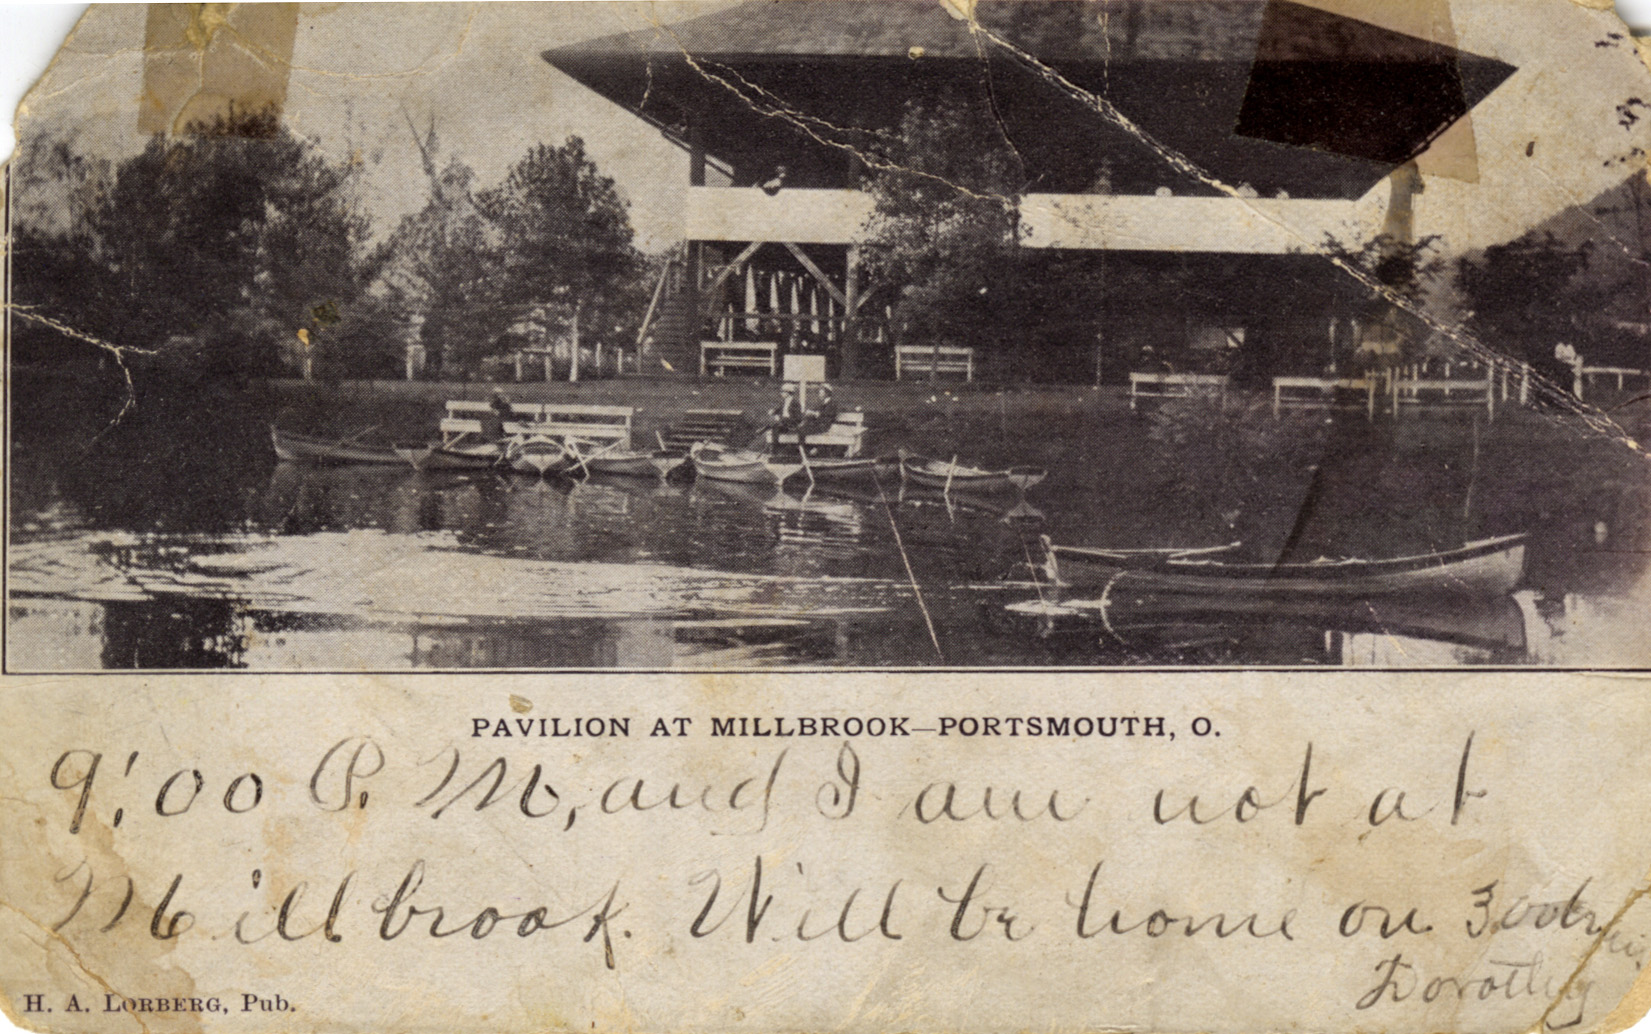 PAVILION AT MILLBROOK—PORTSMOUTH, O.
9:00 P. M, and I am not at
Millbrook. Will be home on 3.00
Dorothy
H. A. LORBERG, Pub.